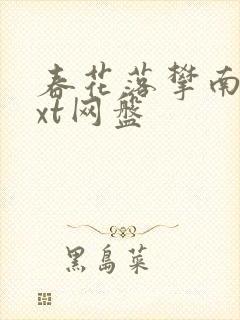 春花落攀南
xt网盘
黑岛菜